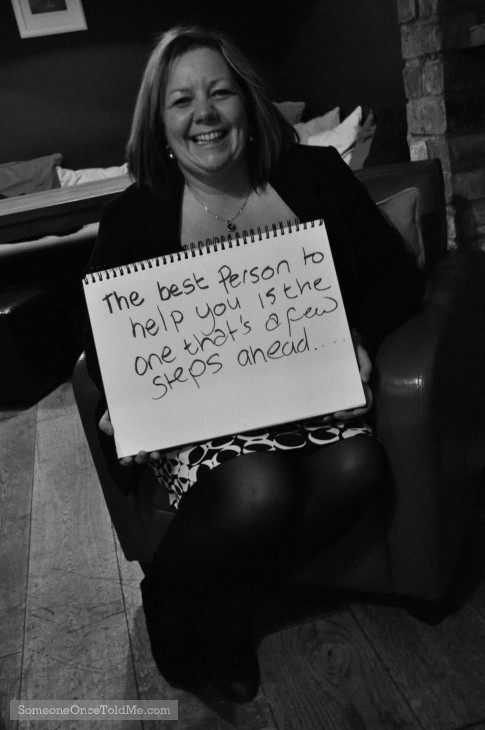 The best Person to
help you is the
one that's a few
steps ahead....
SomeoneOnceToldMe.com